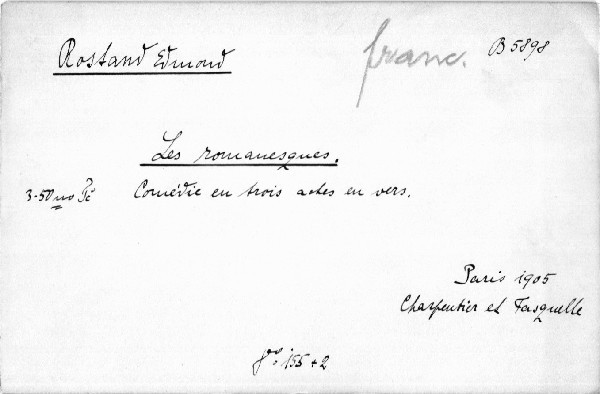 Rostand Edmond
franc.
B 5898
Les romanesques.
3-50 Comédie en trois actes en vers.
Paris 1905
Charpentier et Fasquelle
155+2